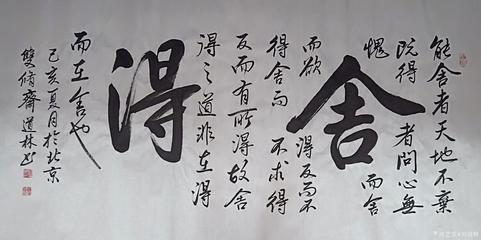 能舍者天地不棄
既得 者問心無
愧 而舍
舍
而欲 得反而不
得舍而 不求得
反而有所得故舍
得之道非在得
得
而在舍也
己亥夏月於北京
雙脩齋道林書